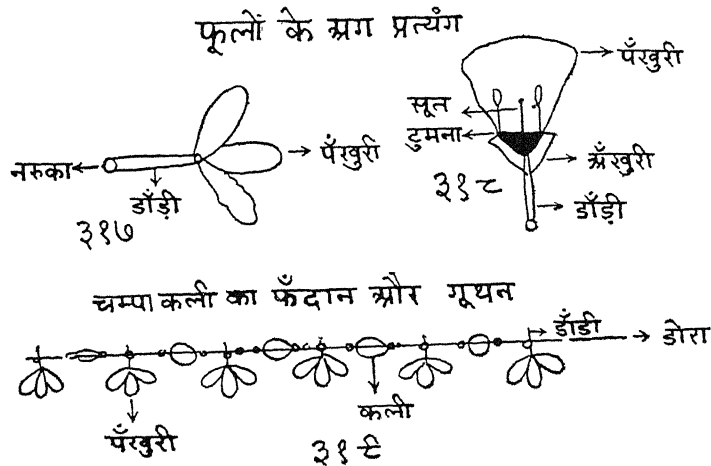 फूलों के अग प्रत्यंग
पँखुरी
सूत
टुमना
अँखुरी
डाँड़ी
३१८
नरुका
पँखुरी
डाँड़ी
३१७
चम्पाकली का फँदान और गूथन
डाँडी
डोरा
कली
पँखुरी
३१९